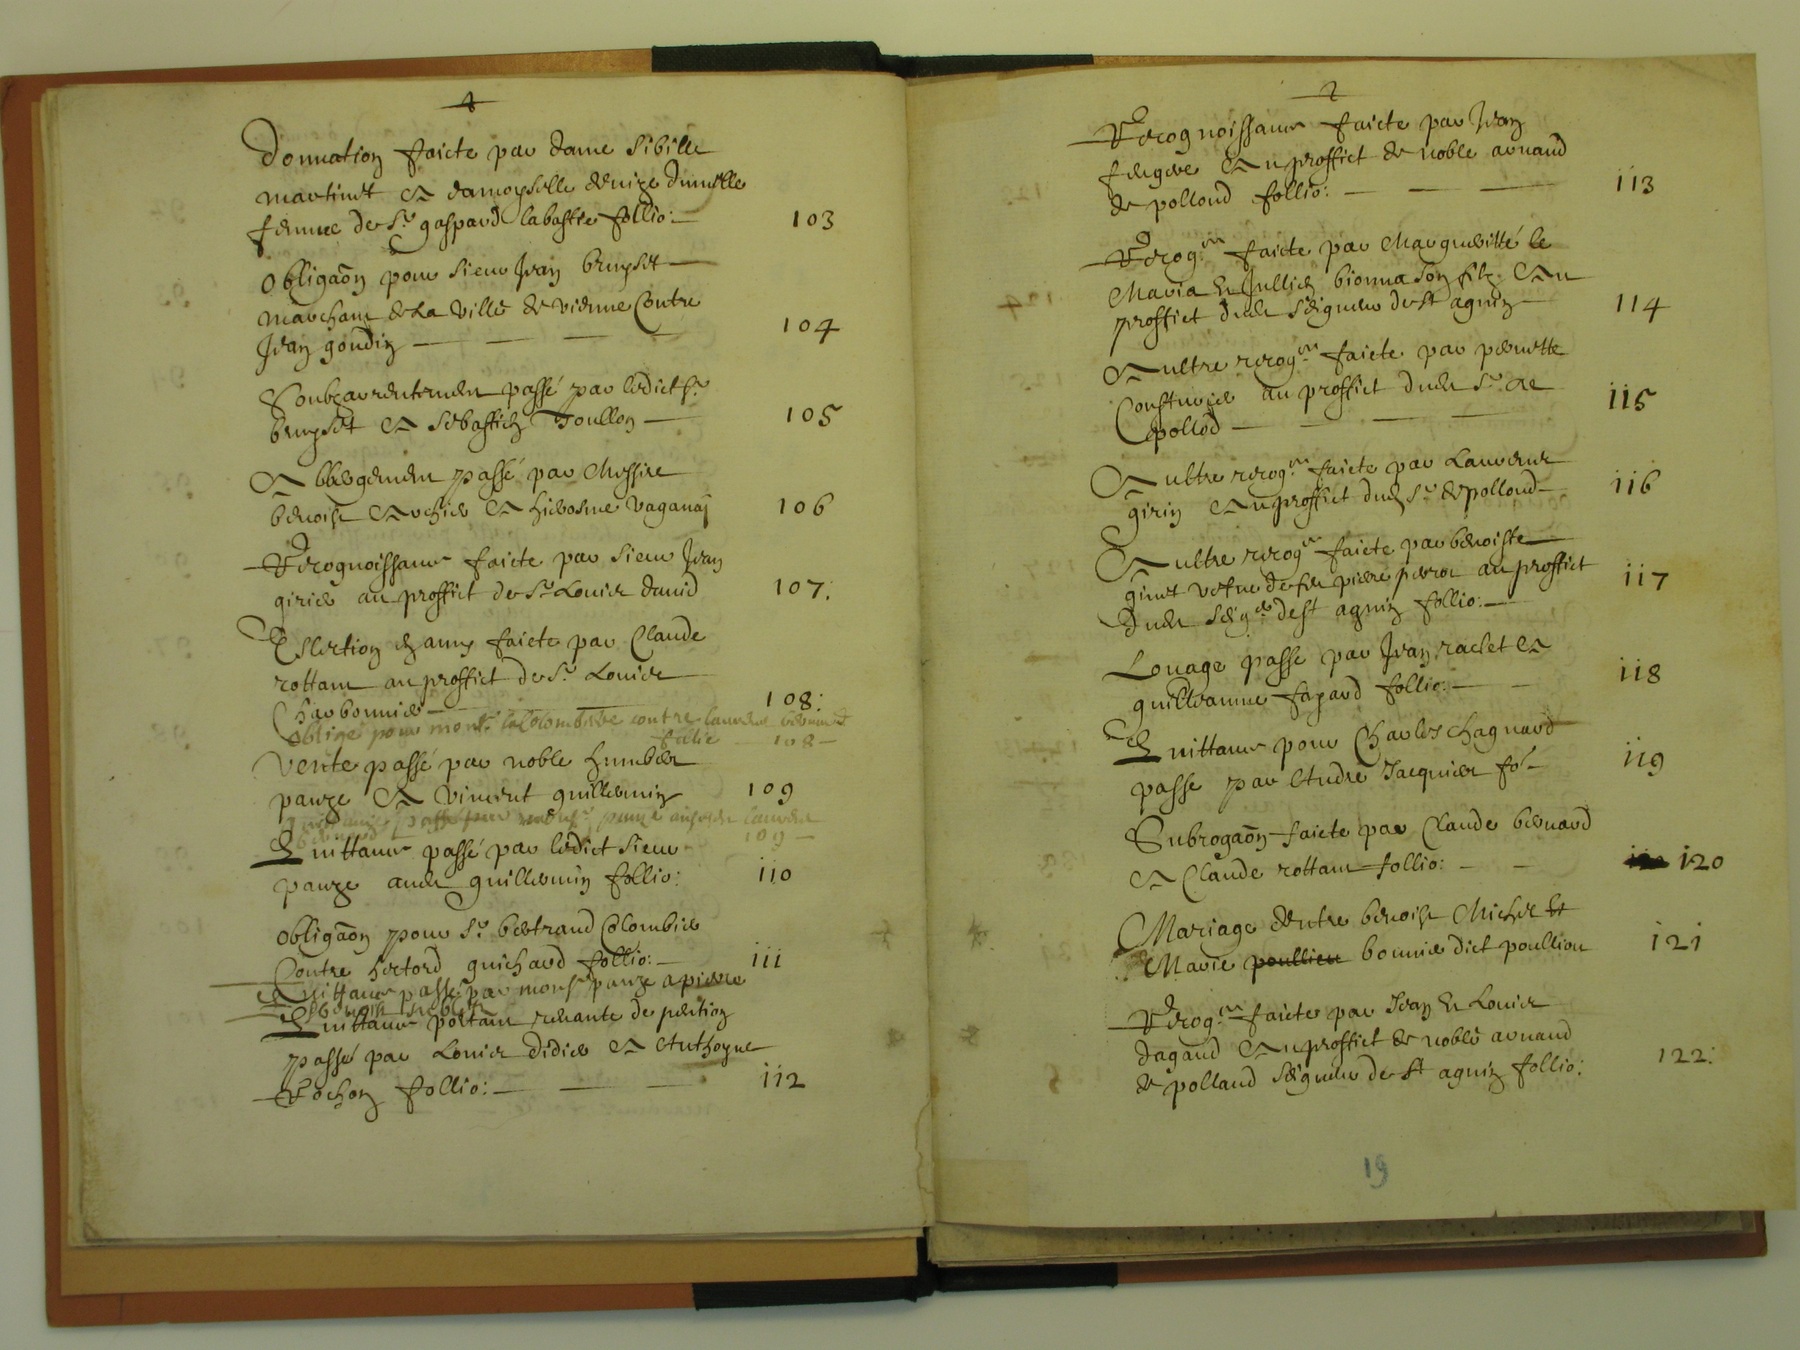 Donnation faicte par dame Sibille
martinet et damoyselle
femme de Sr gaspard labastie follio: 103
Obligaõn pour sieur Jean bruyset
marchant de la ville de vienne Contre
Jean goudin 104
Soubzarrentement passé par ledict Sr
bruyset et sebastien Foullon 105
Abbergement passé par Messire
benoist Archier et hierosme vaganaj 106
Recognoissance faicte par sieur Jean
girier au proffict de Sr Louis david 107:
Eslection faicte par Claude
rottant au proffict de Sr Louis
Charbonnier 108:
oblige pour monsr la Colombiere contre laurent bernard
follio 108
Vente passé par noble humbert
panze et vincent guillermin 109
109
Quittance passé par ledict sieur
panze audit guillermin follio: 110
Obligaõn pour Sr bertrand Colombier
Contre hectord guichard follio: 111
Quittance passé par monsr panze a pierre
benoist
Quittance portant
passé par Louis didier et Anthoyne
Rochon follio: 112
2
Recognoissance faicte par Jean
au proffict de noble arnaud
de pollond follio: 113
Recogon faicte par Margueritte le
Maria et Jullien bionna son filz Au
proffict dudit seigneur de st agnin 114
Aultre recogon faicte par pernette
au proffict dudit Sr de
pollod 115
Aultre recogon faicte par Laurent
girin au proffict dudit Sr de pollond 116
Aultre recogon faicte par benoiste
ginet vefue de feu pierre au proffict
dudit seigr de st agnin follio: 117
Louage passe par Jean raclet et
guilleaume fayard follio: 118
Quittance pour Charles Chagnard
passe par Andre Jacquier fo 119
Subrogaõn faicte par Claude bernard
et Claude rottant follio: 120
Mariage dentre benoist Michel et
Marie poullieu bonnier dict poullieu 121
Recogon faicte par Jean et Louis
dagaud Au proffict de noble arnaud
de polland seigneur de st agnin follio: 122:
19